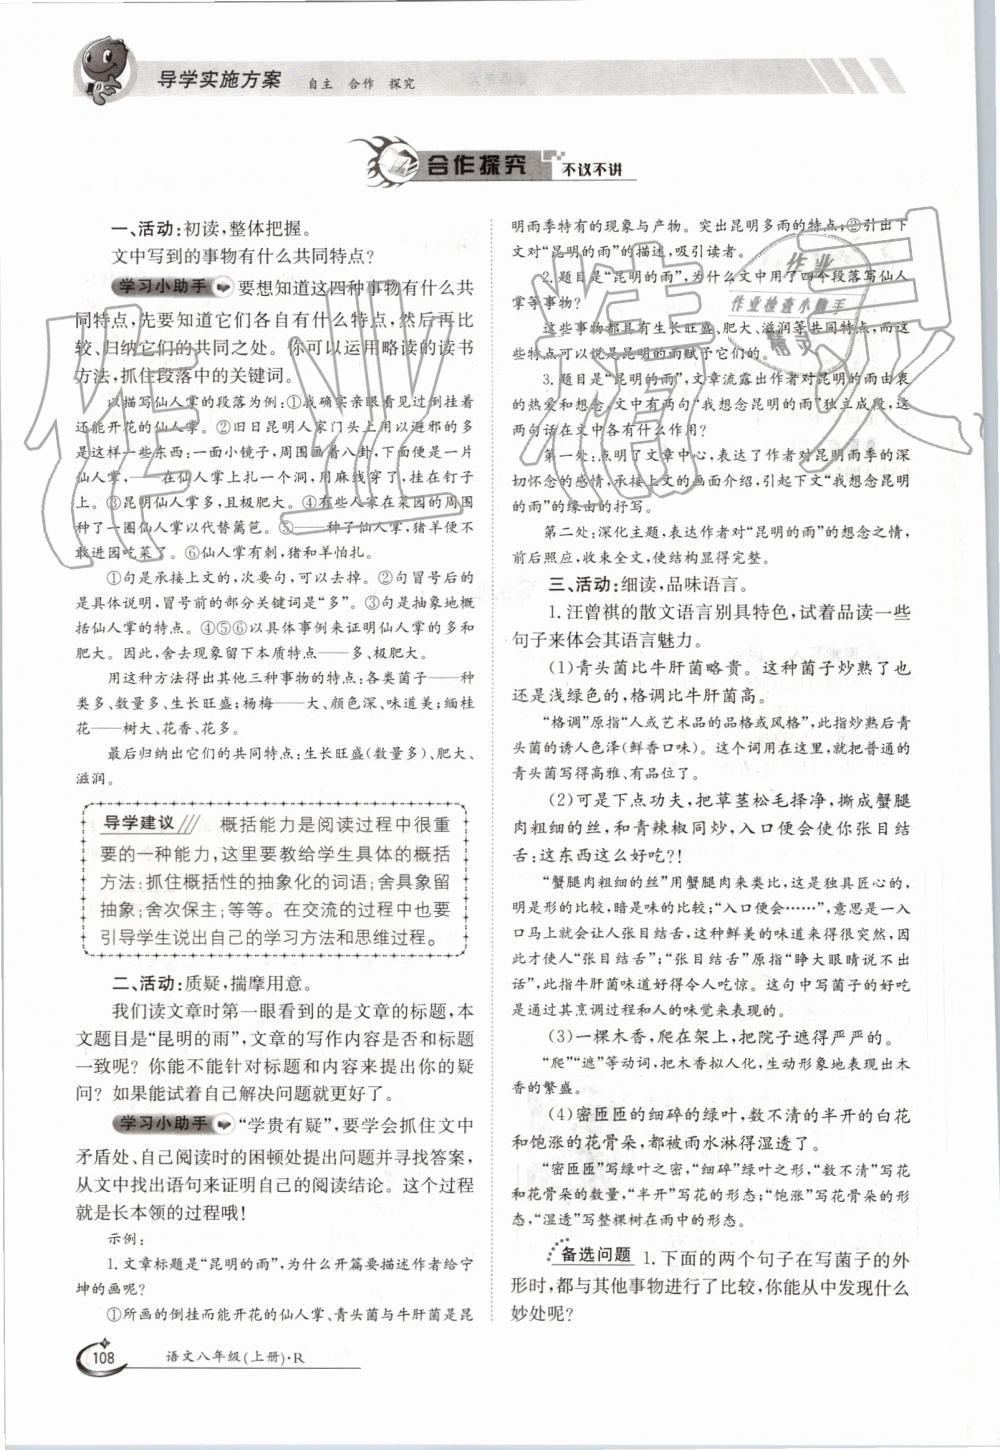 导学实施方案 自主 合作 探究
合作探究 不议不讲
一、活动:初读,整体把握。
文中写到的事物有什么共同特点?
学习小助手 要想知道这四种事物有什么共
同特点,先要知道它们各自有什么特点,然后再比
较、归纳它们的共同之处。你可以运用略读的读书
方法,抓住段落中的关键词。
以描写仙人掌的段落为例:①我确实亲眼看见过倒挂着
还能开花的仙人掌。②旧日昆明人家门头上用以避邪的多
是这样一些东西:一面小镜子,周围画着八卦,下面便是一片
仙人掌,——在仙人掌上扎一个洞,用麻线穿了,挂在钉子
上。③昆明仙人掌多,且极肥大。④有些人家在菜园的周围
种了一圈仙人掌以代替篱笆。⑤——种了仙人掌,猪羊便不
敢进园吃菜了。⑥仙人掌有刺,猪和羊怕扎。
①句是承接上文的,次要句,可以去掉。②句冒号后的
是具体说明,冒号前的部分关键词是“多”。③句是抽象地概
括仙人掌的特点。④⑤⑥以具体事例来证明仙人掌的多和
肥大。因此,舍去现象留下本质特点——多、极肥大。
用这种方法得出其他三种事物的特点:各类菌子——种
类多、数量多、生长旺盛;杨梅——大、颜色深、味道美;缅桂
花——树大、花香、花多。
最后归纳出它们的共同特点:生长旺盛(数量多)、肥大、
滋润。
导学建议 概括能力是阅读过程中很重
要的一种能力,这里要教给学生具体的概括
方法:抓住概括性的抽象化的词语;舍具象留
抽象;舍次保主;等等。在交流的过程中也要
引导学生说出自己的学习方法和思维过程。
二、活动:质疑,揣摩用意。
我们读文章时第一眼看到的是文章的标题,本
文题目是“昆明的雨”,文章的写作内容是否和标题
一致呢?你能不能针对标题和内容来提出你的疑
问?如果能试着自己解决问题就更好了。
学习小助手 “学贵有疑”,要学会抓住文中
矛盾处、自己阅读时的困顿处提出问题并寻找答案,
从文中找出语句来证明自己的阅读结论。这个过程
就是长本领的过程哦!
示例:
1.文章标题是“昆明的雨”,为什么开篇要描述作者给宁
坤的画呢?
①所画的倒挂而能开花的仙人掌、青头菌与牛肝菌是昆
明雨季特有的现象与产物。突出昆明多雨的特点;②引出下
文对“昆明的雨”的描述,吸引读者。
2.题目是“昆明的雨”,为什么文中用了四个段落写仙人
掌等事物?
这些事物都具有生长旺盛、肥大、滋润等共同特点,而这
些特点可以说是昆明的雨赋予它们的。
3.题目是“昆明的雨”,文章流露出作者对昆明的雨由衷
的热爱和想念,文中有两句“我想念昆明的雨”独立成段,这
两句话在文中各有什么作用?
第一处:点明了文章中心,表达了作者对昆明雨季的深
切怀念的感情,承接上文的画面介绍,引起下文“我想念昆明
的雨”的缘由的抒写。
第二处:深化主题,表达作者对“昆明的雨”的想念之情,
前后照应,收束全文,使结构显得完整。
三、活动:细读,品味语言。
1.汪曾祺的散文语言别具特色,试着品读一些
句子来体会其语言魅力。
(1)青头菌比牛肝菌略贵。这种菌子炒熟了也
还是浅绿色的,格调比牛肝菌高。
“格调”原指“人或艺术品的品格或风格”,此指炒熟后青
头菌的诱人色泽(鲜香口味)。这个词用在这里,就把普通的
青头菌写得高雅、有品位了。
(2)可是下点功夫,把草茎松毛择净,撕成蟹腿
肉粗细的丝,和青辣椒同炒,入口便会使你张目结
舌:这东西这么好吃?!
“蟹腿肉粗细的丝”用蟹腿肉来类比,这是独具匠心的,
明是形的比较,暗是味的比较;“入口便会……”,意思是一入
口马上就会让人张目结舌,这种鲜美的味道来得很突然,因
此才使人“张目结舌”;“张目结舌”原指“睁大眼睛说不出
话”,此指牛肝菌味道好得令人吃惊。这句中写菌子的好吃
是通过其烹调过程和人的味觉来表现的。
(3)一棵木香,爬在架上,把院子遮得严严的。
“爬”“遮”等动词,把木香拟人化,生动形象地表现出木
香的繁盛。
(4)密匝匝的细碎的绿叶,数不清的半开的白花
和饱涨的花骨朵,都被雨水淋得湿透了。
“密匝匝”写绿叶之密,“细碎”绿叶之形,“数不清”写花
和花骨朵的数量,“半开”写花的形态;“饱涨”写花骨朵的形
态,“湿透”写整棵树在雨中的形态。
备选问题 1.下面的两个句子在写菌子的外
形时,都与其他事物进行了比较,你能从中发现什么
妙处呢?
108 语文八年级(上册)·R
作业精灵
作业
作业检查小助手
精灵